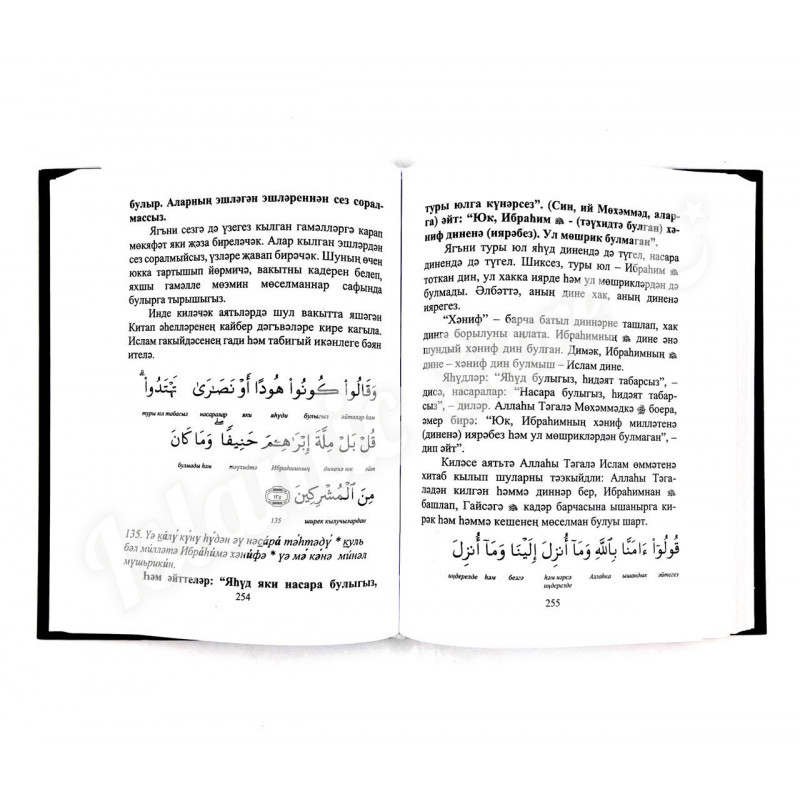 булыр. Аларның эшләгән эшләреннән сез сорал-
массыз.
Ягъни сезгә дә үзегез кылган гамәлләргә карап
мөкяфәт яки җәза биреләчәк. Алар кылган эшләрдән
сез соралмыйсыз, үзләре җавап бирәчәк. Шуның өчен
юкка тартышып йөрмичә, вакытның кадерен белеп,
яхшы гамәлле мөэмин мөселманнар сафында
булырга тырышыгыз.
Инде киләчәк аятьләрдә шул вакытта яшәгән
Китап әһелләренең кайбер дәгъвәләре кире кагыла.
Ислам гакыйдәсенең гади һәм табигый икәнлеге бәян
ителә.
وَقَالُوا۟ كُونُوا۟ هُودًا أَوْ نَصَـٰرَىٰ تَهْتَدُوا۟ ۗ
туры юл табасыз насаралар яки яһүди булыгыз әйтәләр һәм
قُلْ بَلْ مِلَّةَ إِبْرَٰهِـۧمَ حَنِيفًا ۖ وَمَا كَانَ
булмады һәм тәүхидтә Ибраһимның диненә юк әйт
مِنَ ٱلْمُشْرِكِينَ ﴿١٣٥﴾
135 ширек кылучылардан
135. Үә ка́лу́ ку́ну һу́дән әү нәса́ра́ тәһтәду́ * куль
бәл милләтә Ибра́һи́мә хәни́фә * үә мә́ кә́нә ми́нәл
мүшьрики́н.
Һәм әйттеләр: “Яһүд яки насара булыгыз,
254
туры юлга күнәрсез”. (Син, ий Мөхәммәд, алар-
га) әйт: “Юк, Ибраһим ﷺ - (тәүхидтә булган) хә-
ниф диненә (иярәбез). Ул мөшрик булмаган”.
Ягъни туры юл яһүд динендә дә түгел, насара
динендә дә түгел. Шиксез, туры юл – Ибраһим ﷺ
тоткан дин, ул хакка иярде һәм ул мөшрикләрдән дә
булмады. Әлбәттә, аның дине хак, аның диненә
иярегез.
“Хәниф” – барча батыл диннәрне ташлап, хак
дингә борылуны аңлата. Ибраһимның ﷺ дине әнә
шундый хәниф дин булган. Димәк, Ибраһимның ﷺ
дине - хәниф дин булмыш – Ислам дине.
Яһүдләр: “Яһүд булыгыз, һидәят табарсыз”, –
дисә, насаралар: “Насара булыгыз, һидәят табар-
сыз”, – диләр. Аллаһы Тәгалә Мөхәммәдкә ﷺ боера,
әмер бирә: “Юк, Ибраһимның хәниф милләтенә
(диненә) иярәбез һәм ул мөшрикләрдән булмаган”, –
дип әйт”.
Киләсе аятьтә Аллаһы Тәгалә Ислам өммәтенә
хитаб кылып шуларны тәэкыйдли: Аллаһы Тәга-
ләдән килгән һәммә диннәр бер, Ибраһимнан ﷺ
башлап, Гайсәгә ﷺ кадәр барчасына ышанырга ки-
рәк һәм һәммә кешенең мөселман булуы шарт.
قُولُوٓا۟ ءَامَنَّا بِٱللَّهِ وَمَآ أُنزِلَ إِلَيْنَا وَمَآ أُنزِلَ
иңдерелде һәм безгә һәм нәрсә Аллаһка ышандык әйтегез
иңдерелде
255